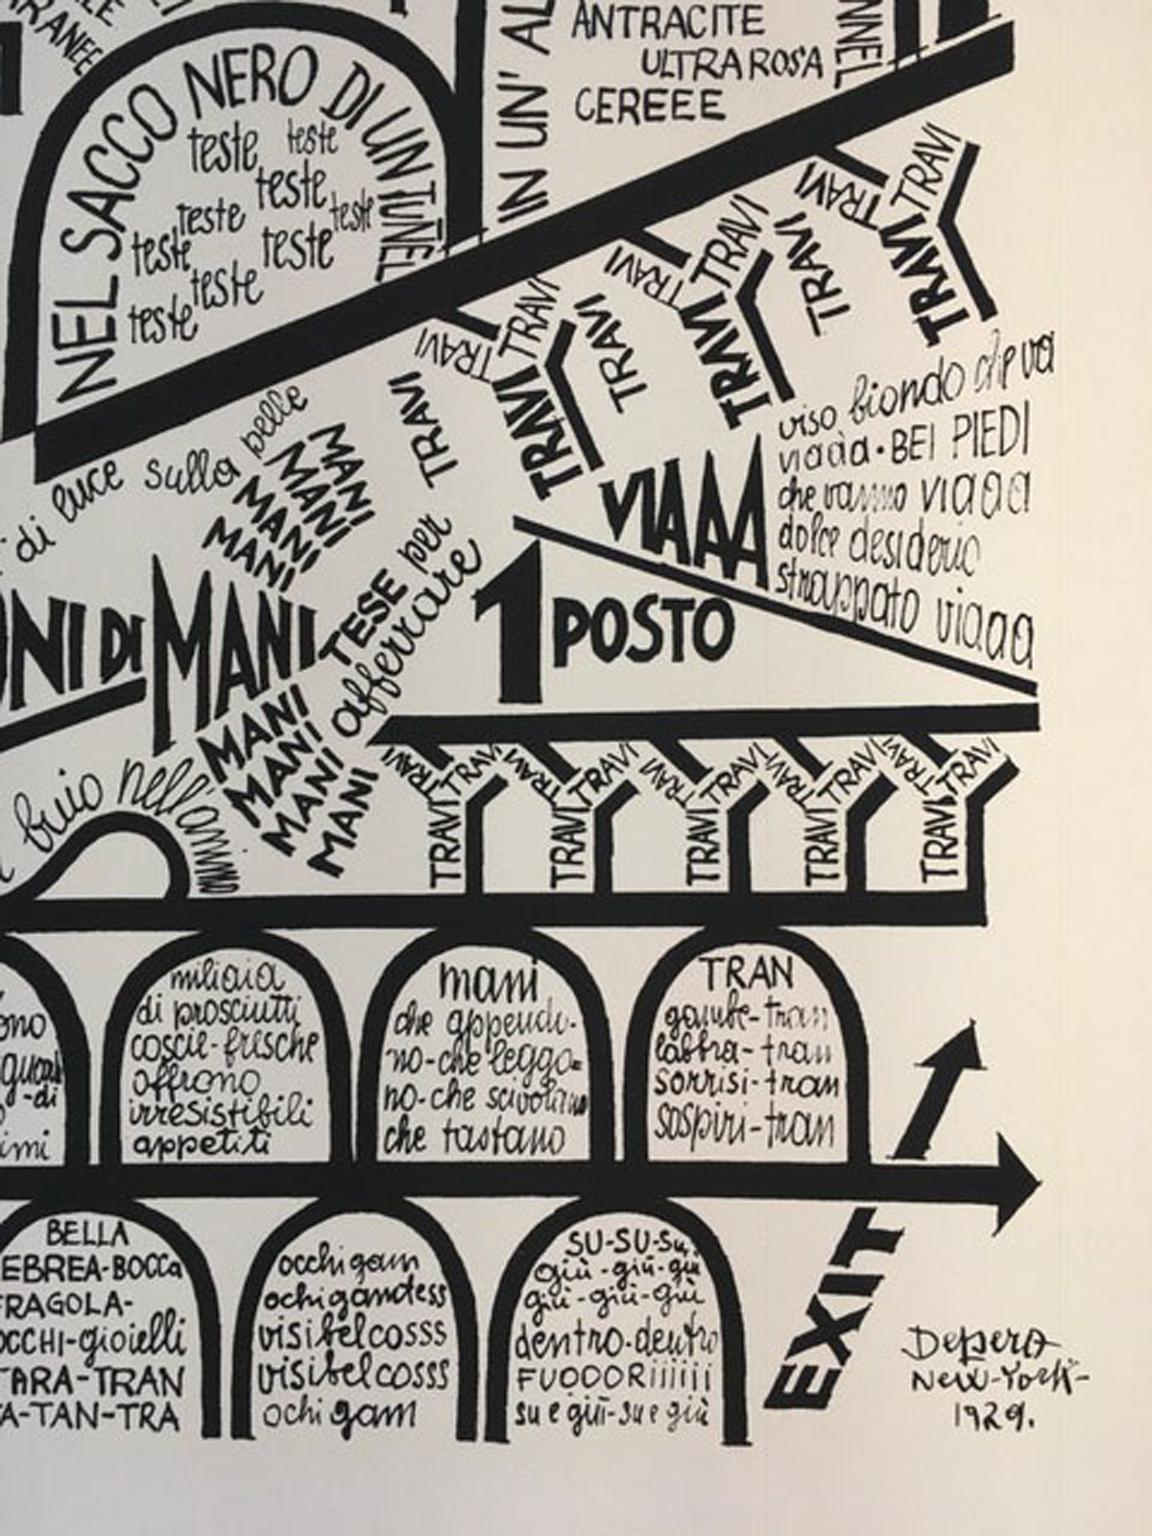 ANTRACITE
ULTRAROSA
CEREEE
IN UN' AL
NEL SACCO NERO DI UN TUNEL
teste teste
teste
teste teste
teste teste
teste
teste
TRAVI TRAVI TRAVI
TRAVI TRAVI
TRAVI TRAVI TRAVI
TRAVI TRAVI
TRAVI TRAVI TRAVI
TRAVI TRAVI
viso biondo che va
viaàa·BEI PIEDI
che vanno viaaa
dolce desiderio
strappato viaaa
VIAAA
di luce sulla pelle
MANI MANI
MANI MANI
MANI MANI
DI MANI
TESE per
afferrare
1 POSTO
MANI
MANI
MANI
MANI
buio nell'
TRAVI TRAVI TRAVI TRAVI TRAVI TRAVI TRAVI TRAVI TRAVI TRAVI
TRAVI TRAVI TRAVI TRAVI TRAVI
miliaia
di prosciutti
coscie-fresche
offrono
irresistibili
appetiti
mani
che appendo-
no-che leggo-
no-che scivolano
che tastano
TRAN
gambe-tran
labbra-tran
sorrisi-tran
sospiri-tran
BELLA
EBREA-BOCCa
FRAGOLA-
OCCHI-gioielli
TARA-TRAN
TA-TAN-TRA
occhi gam
ochi gamdess
visibelcosss
visibelcosss
ochi gam
SU-SU-Su
giù-giù-giù
giù-giù-giù
dentro-dentro
FUOOORiiiiii
su e giù-su e giù
EXIT
Depero
New-York-
1929.